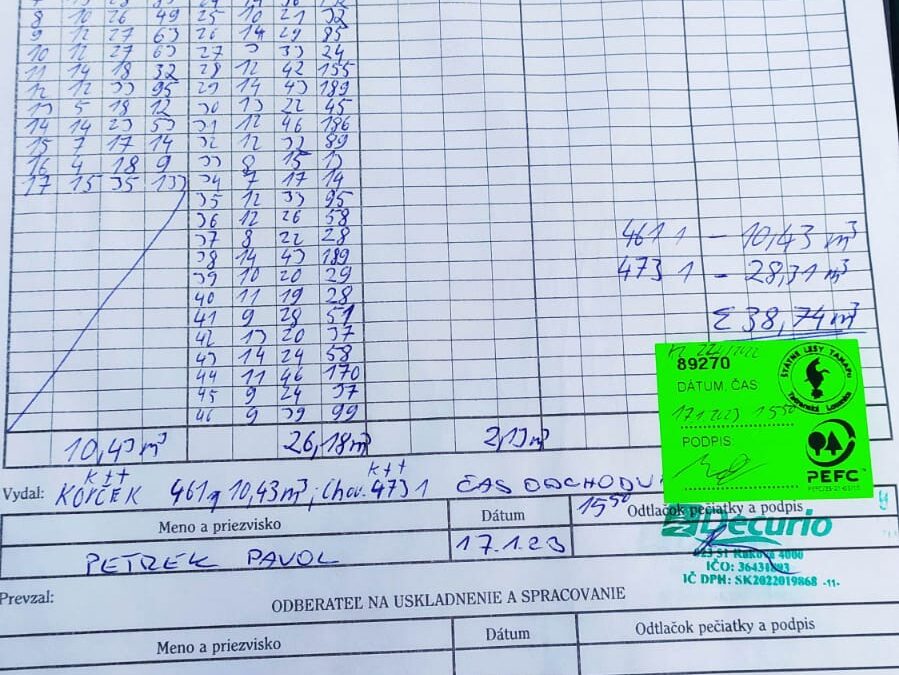 8 10 26 49 25 10 21 32
9 12 27 63 26 14 29 85
10 12 27 63 27 5 33 24
11 14 18 32 28 12 42 155
12 12 33 95 29 14 43 189
13 5 18 12 30 13 22 45
14 14 23 53 31 12 46 186
15 7 17 14 32 12 32 89
16 4 18 9 33 8 15 13
17 15 35 133 34 7 17 14
35 12 33 95
36 12 26 58
37 8 22 28
38 14 43 189
39 10 20 29
40 11 19 28
41 9 28 51
42 13 20 37
43 14 24 58
44 11 46 170
45 9 24 37
46 9 39 99
461 1 - 10,43 m³
473 1 - 28,31 m³
Σ 38,74 m³
89270
DÁTUM, ČAS
17.1.2023 15 50
PODPIS
ŠTÁTNE LESY TANAPu
Tatranská Lomnica
PEFC
10,43 m³ 26,18 m³ 2,13 m³
Vydal: KORČEK 461 10,43 m³; 473 1 ČAS ODCHODU
15 50
Meno a priezvisko Dátum Odtlačok pečiatky a podpis
PETREK PAVOL 17.1.23
Decurio
023 51 Raková 4000
IČO: 36431893
IČ DPH: SK2022019868 -11-
Prevzal:
ODBERATEĽ NA USKLADNENIE A SPRACOVANIE
Meno a priezvisko Dátum Odtlačok pečiatky a podpis